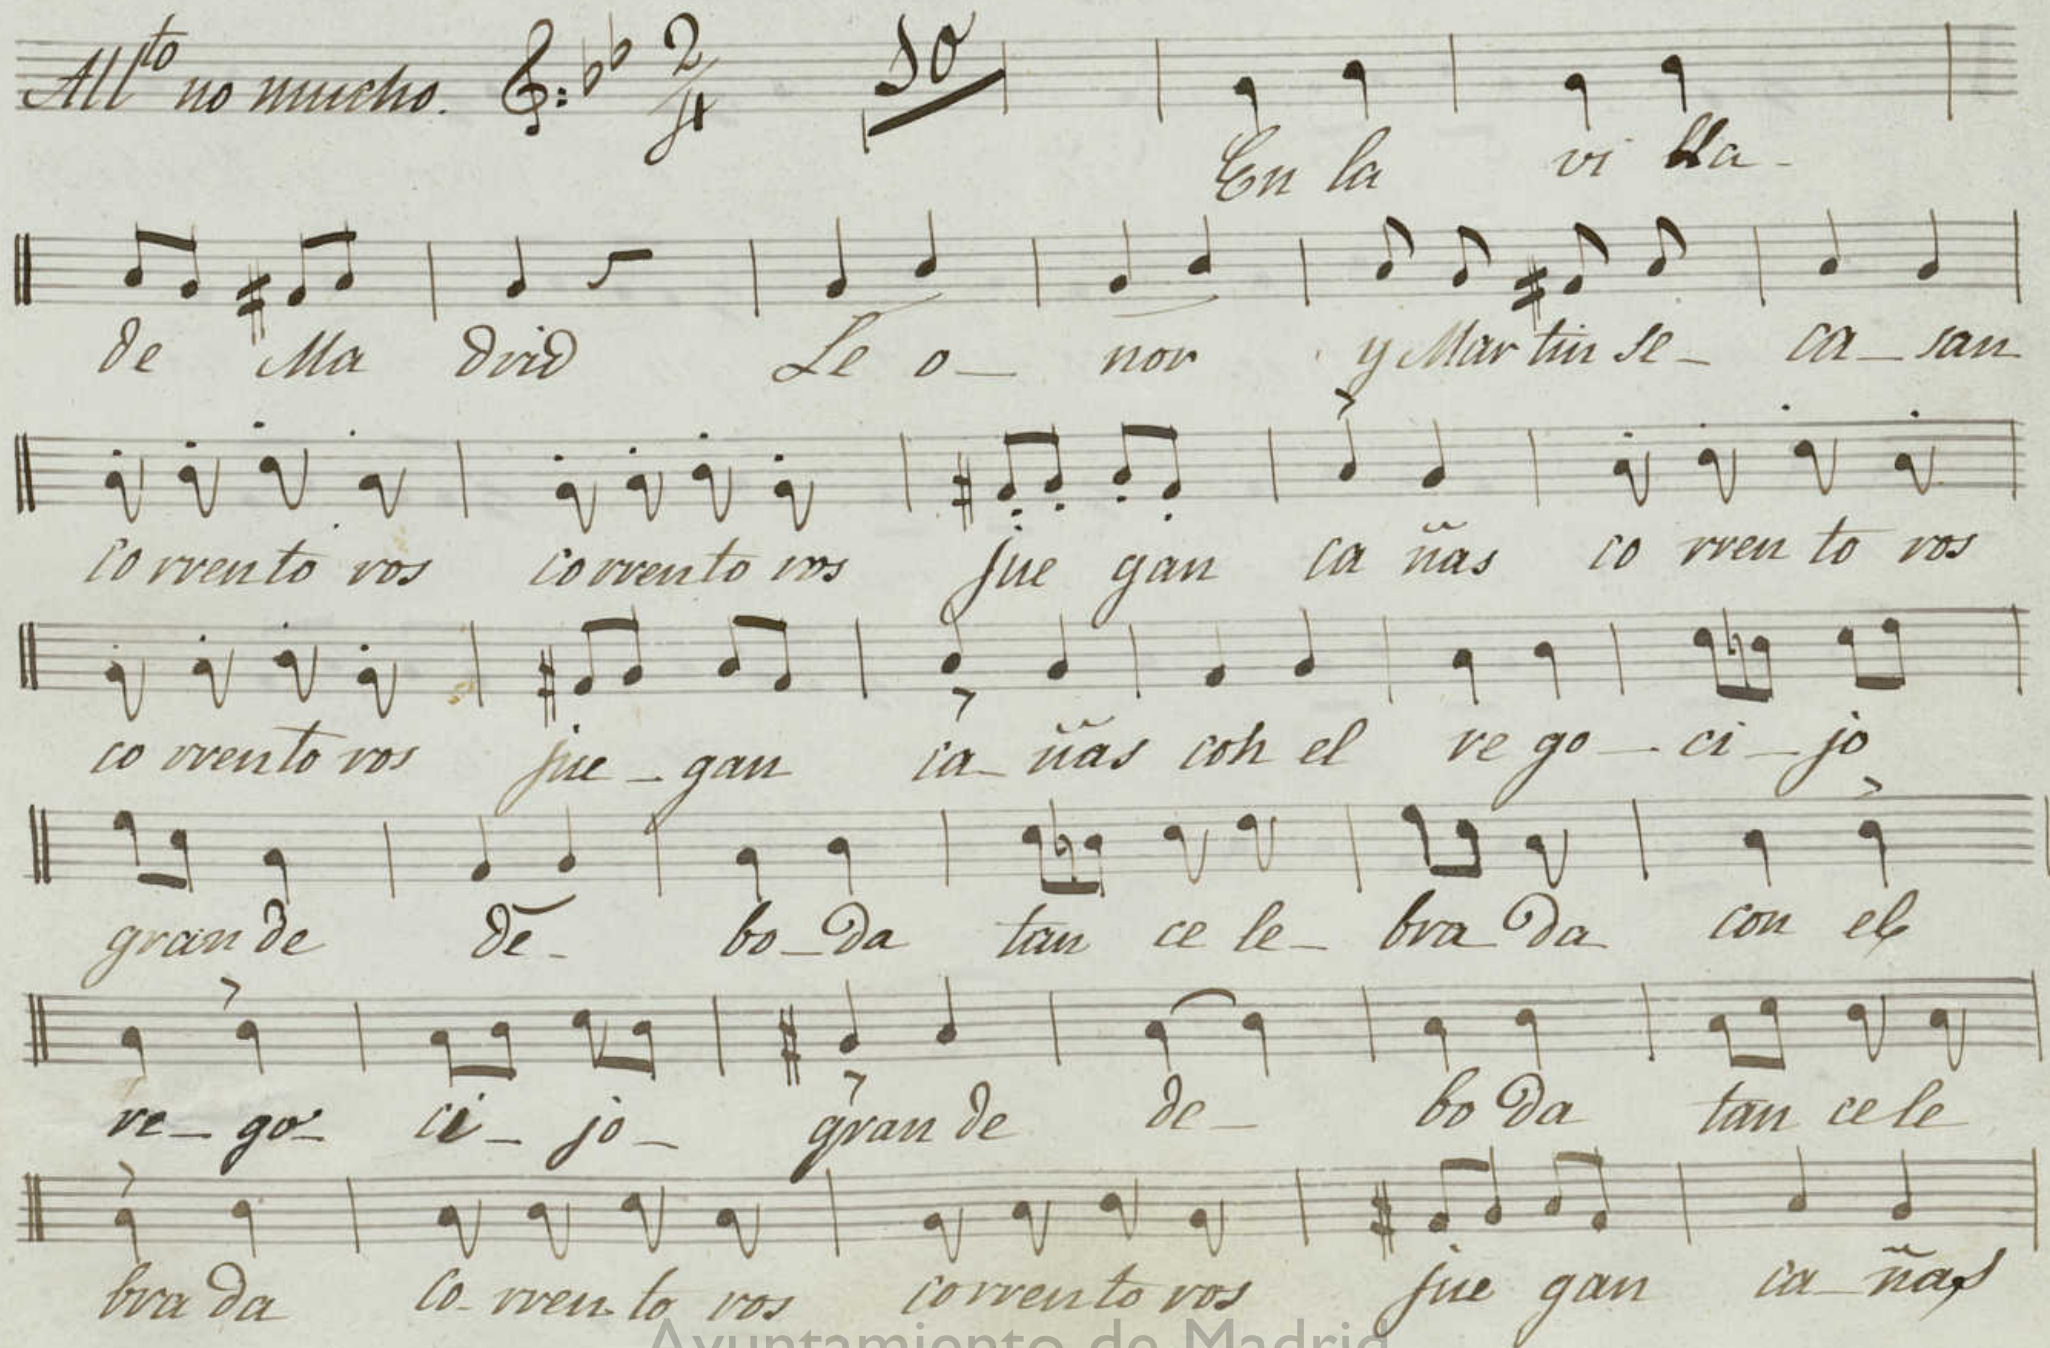 All^to no mucho. 2/4 10
En la vi lla-
de Ma drid Le o- nor y Mar tin se- ca- san
co rren to ros co rren to ros jue gan ca ñas co rren to ros
co rren to ros jue- gan ca- ñas con el re go- ci- jo
gran de de- bo- da tan ce le- bra da con el
re- go- ci- jo- gran de de- bo da tan ce le
bra da co- rren- to ros co rren to ros jue gan ca- ñas
Ayuntamiento de Madrid